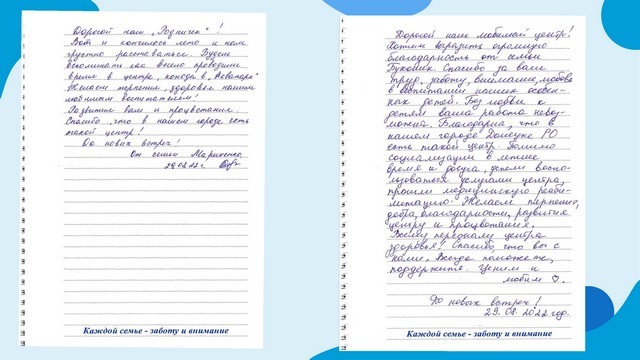 Дорогой наш „Родничек"!
Вот и кончилось лето и нам
грустно расставаться. Будем
вспоминать как весело проводили
время в центре, походы в „Аквапарк"
Желаем терпения, здоровья нашим
любимым воспитателям!
Развития вам и процветания.
Спасибо, что в нашем городе есть
такой центр!
До новых встреч!
От семьи Мариненко
29.08.22 г.
Каждой семье - заботу и внимание
Дорогой наш любимый центр!
Хотим выразить огромную
благодарность от семьи
Спасибо за ваш
труд, заботу, внимание, любовь
в воспитании наших особен-
ных детей. Без любви к
детям ваша работа невоз-
можна. Благодарна, что в
нашем городе Донецке РО
есть такой центр. Помимо
социализации в летнее
время и досуга, успели воспо-
льзоваться услугами центра,
прошли медицинскую реаби-
литацию. Желаем терпения,
добра, благодарности, развития
центру и процветания.
Всему персоналу центра
здоровья! Спасибо, что вы с
нами. Всегда поможете,
поддержите. Ценим и
любим ♡.
До новых встреч!
29.08.2022 год.
Каждой семье - заботу и внимание